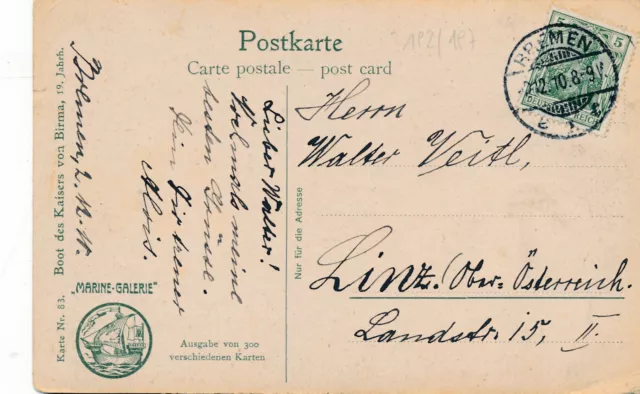 Postkarte
Carte postale — post card
182/187
BREMEN
2.12.10.8-9V.
5 5
DEUTSCHES REICH
Herrn
Walter Veitl,
Linz. (Ober-Österreich.
Landstr. 15, II.
Nur für die Adresse
Lieber Walter!
Vielmals meine
besten Grüsse.
Dein Dir treuer
Alois.
Bremen, 2.
Karte Nr. 83. Boot des Kaisers von Birma, 19. Jahrh.
"MARINE-GALERIE"
Ausgabe von 300
verschiedenen Karten